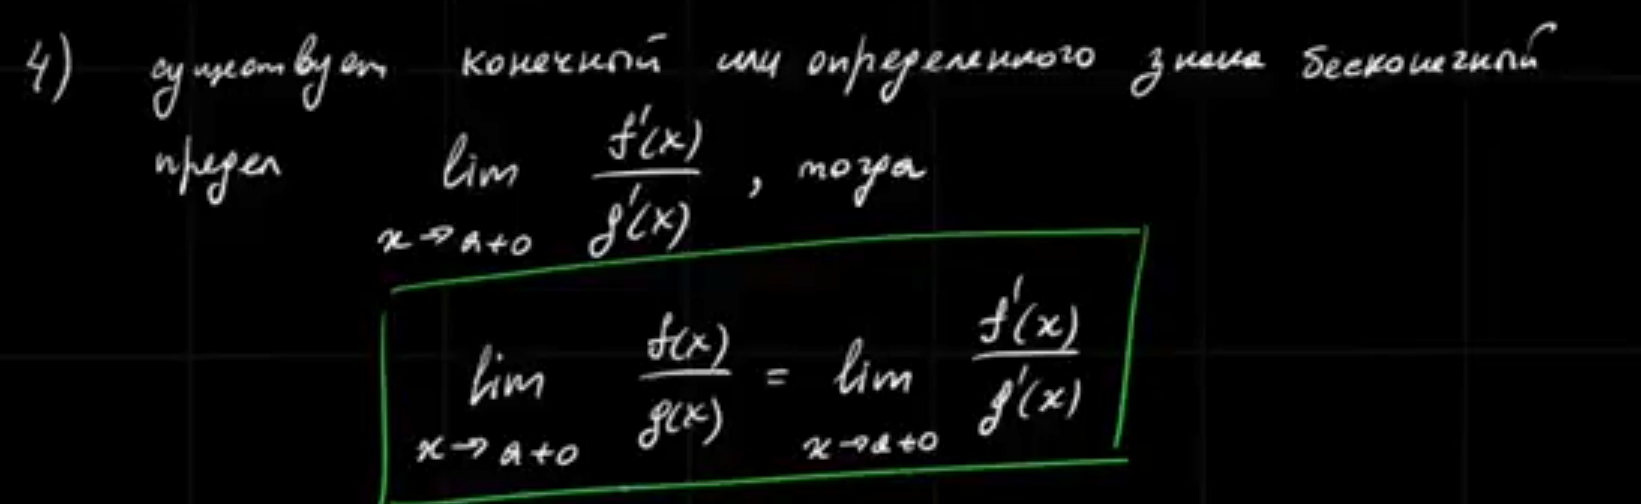 4) существует конечный или определенного знака бесконечный
предел lim x→a+0 f'(x)/g'(x), тогда
lim x→a+0 f(x)/g(x) = lim x→a+0 f'(x)/g'(x)